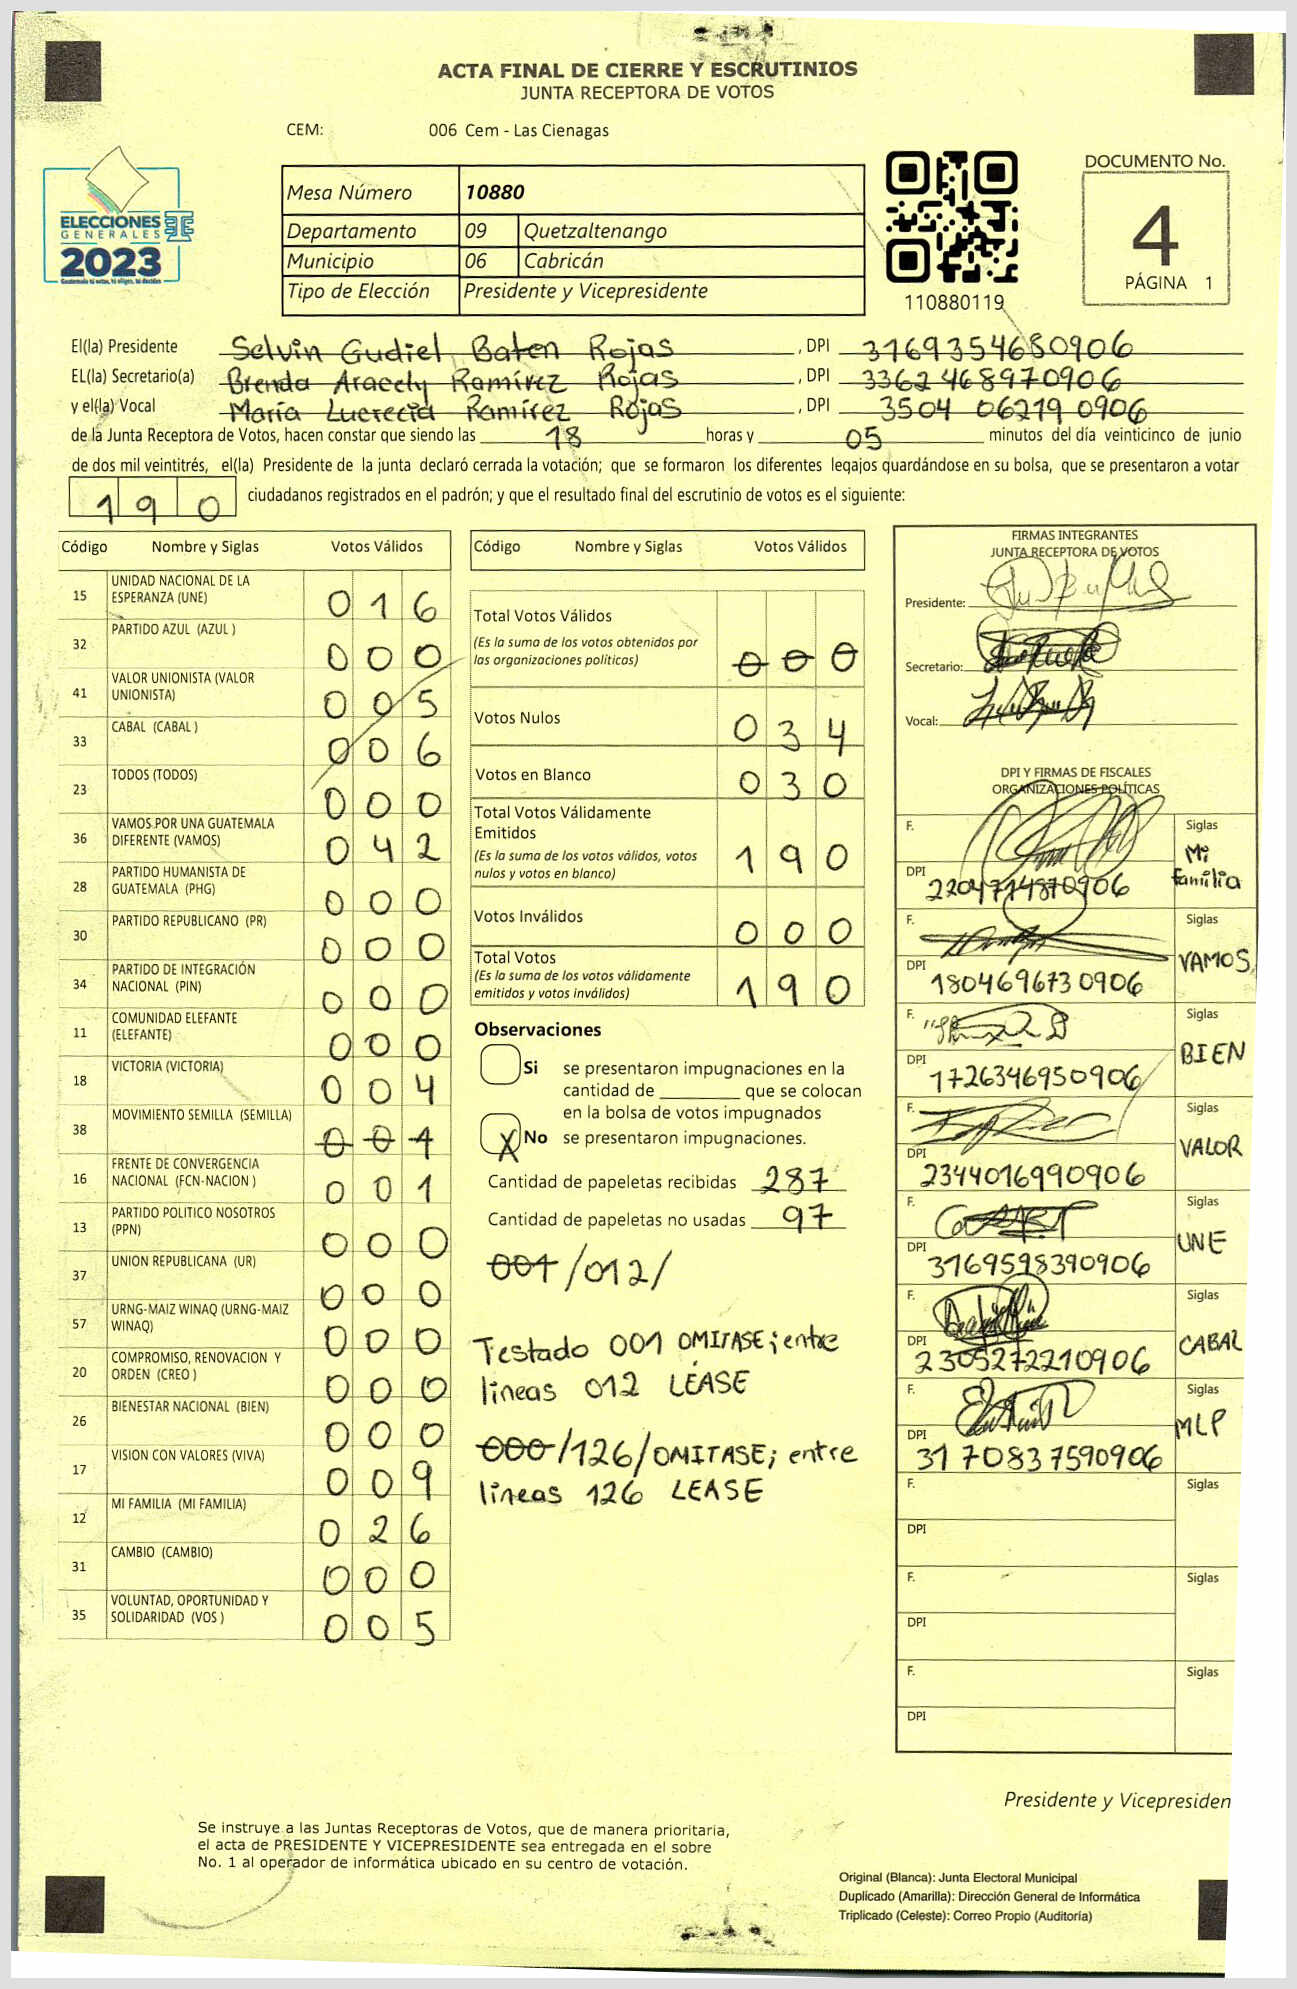 ACTA FINAL DE CIERRE Y ESCRUTINIOS
JUNTA RECEPTORA DE VOTOS
CEM: 006 Cem - Las Cienagas
ELECCIONES
GENERALES
2023
Guatemala tú votas, tú eliges, tú decides
Mesa Número 10880
Departamento 09 Quetzaltenango
Municipio 06 Cabricán
Tipo de Elección Presidente y Vicepresidente
110880119
DOCUMENTO No.
4
PÁGINA 1
El(la) Presidente Selvin Gudiel Baten Rojas , DPI 3169354680906
EL(la) Secretario(a) Brenda Aracely Ramírez Rojas , DPI 3362468970906
y el(la) Vocal María Lucrecia Ramírez Rojas , DPI 3504 06219 0906
de la Junta Receptora de Votos, hacen constar que siendo las 18 horas y 05 minutos del día veinticinco de junio
de dos mil veintitrés, el(la) Presidente de la junta declaró cerrada la votación; que se formaron los diferentes legajos guardándose en su bolsa, que se presentaron a votar
190 ciudadanos registrados en el padrón; y que el resultado final del escrutinio de votos es el siguiente:
Código Nombre y Siglas Votos Válidos
15 UNIDAD NACIONAL DE LA ESPERANZA (UNE) 016
32 PARTIDO AZUL (AZUL ) 000
41 VALOR UNIONISTA (VALOR UNIONISTA) 005
33 CABAL (CABAL ) 006
23 TODOS (TODOS) 000
36 VAMOS POR UNA GUATEMALA DIFERENTE (VAMOS) 042
28 PARTIDO HUMANISTA DE GUATEMALA (PHG) 000
30 PARTIDO REPUBLICANO (PR) 000
34 PARTIDO DE INTEGRACIÓN NACIONAL (PIN) 000
11 COMUNIDAD ELEFANTE (ELEFANTE) 000
18 VICTORIA (VICTORIA) 004
38 MOVIMIENTO SEMILLA (SEMILLA) 001
16 FRENTE DE CONVERGENCIA NACIONAL (FCN-NACION ) 001
13 PARTIDO POLITICO NOSOTROS (PPN) 000
37 UNION REPUBLICANA (UR) 000
57 URNG-MAIZ WINAQ (URNG-MAIZ WINAQ) 000
20 COMPROMISO, RENOVACION Y ORDEN (CREO ) 000
26 BIENESTAR NACIONAL (BIEN) 000
17 VISION CON VALORES (VIVA) 009
12 MI FAMILIA (MI FAMILIA) 026
31 CAMBIO (CAMBIO) 000
35 VOLUNTAD, OPORTUNIDAD Y SOLIDARIDAD (VOS ) 005
Código Nombre y Siglas Votos Válidos
Total Votos Válidos
(Es la suma de los votos obtenidos por las organizaciones políticas) 000
Votos Nulos 034
Votos en Blanco 030
Total Votos Válidamente Emitidos
(Es la suma de los votos válidos, votos nulos y votos en blanco) 190
Votos Inválidos 000
Total Votos
(Es la suma de los votos válidamente emitidos y votos inválidos) 190
Observaciones
Si se presentaron impugnaciones en la
cantidad de ________ que se colocan
en la bolsa de votos impugnados
X No se presentaron impugnaciones.
Cantidad de papeletas recibidas 287
Cantidad de papeletas no usadas 97
001/012/
Testado 001 OMITASE; entre
lineas 012 LEASE
000/126/OMITASE; entre
lineas 126 LEASE
FIRMAS INTEGRANTES
JUNTA RECEPTORA DE VOTOS
Presidente:
Secretario:
Vocal:
DPI Y FIRMAS DE FISCALES
ORGANIZACIONES POLÍTICAS
F. Siglas
DPI 2204714870906 Mi familia
F. Siglas
DPI 1804696730906 VAMOS
F. Siglas
DPI 1726346950906 BIEN
F. Siglas
DPI 2344016990906 VALOR
F. Siglas
DPI 3169598390906 UNE
F. Siglas
DPI 2305272210906 CABAL
F. Siglas
DPI 3170837590906 MLP
F. Siglas
DPI
F. Siglas
DPI
F. Siglas
DPI
Presidente y Vicepresiden
Se instruye a las Juntas Receptoras de Votos, que de manera prioritaria,
el acta de PRESIDENTE Y VICEPRESIDENTE sea entregada en el sobre
No. 1 al operador de informática ubicado en su centro de votación.
Original (Blanca): Junta Electoral Municipal
Duplicado (Amarilla): Dirección General de Informática
Triplicado (Celeste): Correo Propio (Auditoría)